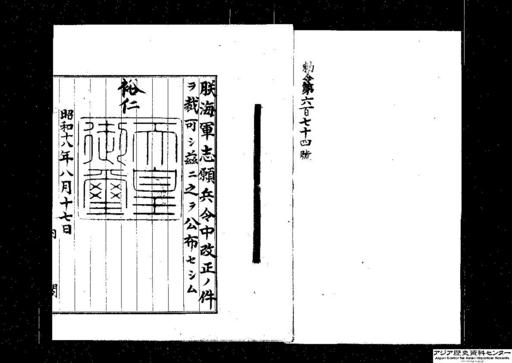 勅令第六百七十四號
朕海軍志願兵令中改正ノ件
ヲ裁可シ茲ニ之ヲ公布セシム
裕仁
天皇
御璽
昭和十八年八月十七日
内閣
アジア歴史資料センター
Japan Center for Asian Historical Records